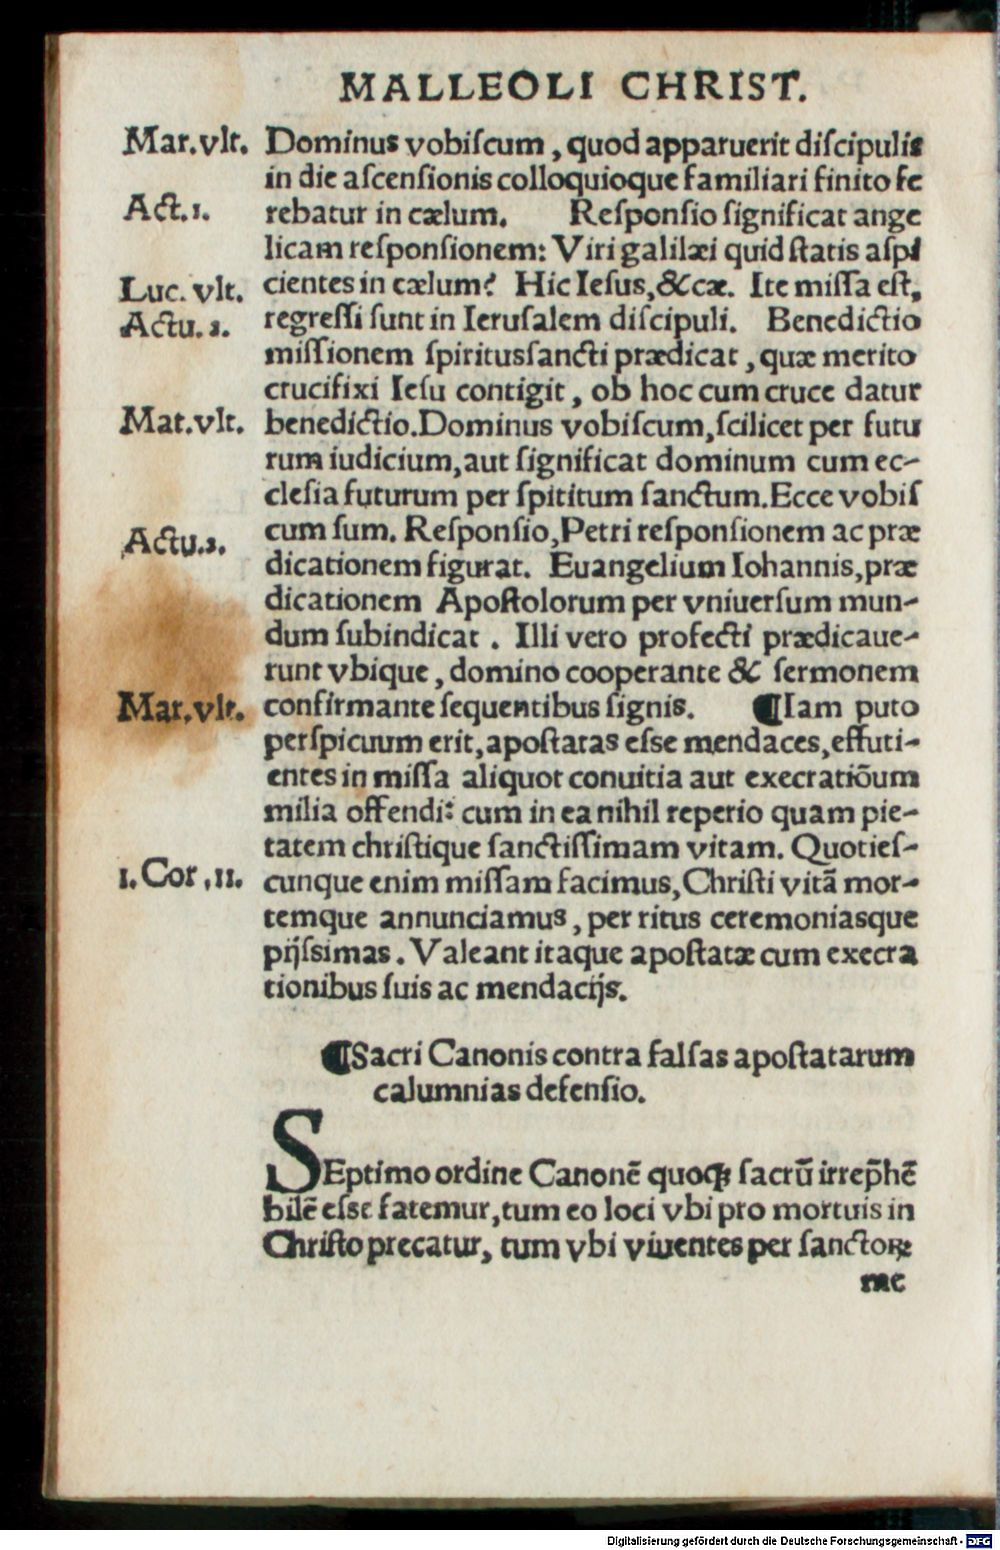 MALLEOLI CHRIST.
Mar.vlt. Dominus vobiſcum, quod apparuerit diſcipulis
in die aſcenſionis colloquioque familiari finito fe
Act.1. rebatur in cælum. Reſponſio ſignificat ange
licam reſponſionem: Viri galilæi quid ſtatis aſpi
Luc. vlt. cientes in cælum? Hic Ieſus,&cæ. Ite miſſa eſt,
Actu.1. regreſſi ſunt in Ieruſalem diſcipuli. Benedictio
miſſionem ſpirituſſancti prædicat, quæ merito
crucifixi Ieſu contigit, ob hoc cum cruce datur
Mat.vlt. benedictio.Dominus vobiſcum,ſcilicet per futu
rum iudicium,aut ſignificat dominum cum ec-
cleſia futurum per ſpititum ſanctum.Ecce vobiſ
Actu.2. cum ſum. Reſponſio,Petri reſponſionem ac præ
dicationem figurat. Euangelium Iohannis,præ
dicationem Apoſtolorum per vniuerſum mun-
dum ſubindicat. Illi vero profecti prædicaue-
runt vbique, domino cooperante & ſermonem
Mar.vlt. confirmante ſequentibus ſignis. ¶Iam puto
perſpicuum erit,apoſtatas eſse mendaces,effuti-
entes in miſſa aliquot conuitia aut execratiõum
milia offendi: cum in ea nihil reperio quam pie-
tatem chriſtique ſanctiſſimam vitam. Quotieſ-
1.Cor.11. cunque enim miſſam facimus,Chriſti vitã mor-
temque annunciamus, per ritus ceremoniasque
pijſsimas. Valeant itaque apoſtatæ cum execra
tionibus ſuis ac mendacijs.
¶Sacri Canonis contra falſas apoſtatarum
calumnias defenſio.
SEptimo ordine Canonẽ quoqꝫ ſacrũ irrep̃hẽ
bilẽ eſse fatemur,tum eo loci vbi pro mortuis in
Chriſto precatur, tum vbi viuentes per ſanctoꝝ
me
Digitalisierung gefördert durch die Deutsche Forschungsgemeinschaft - DFG